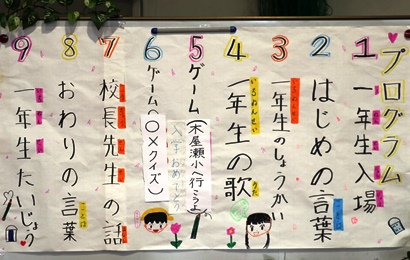 プログラム
1 一年生入場
2 はじめの言葉
3 一年生のしょうかい
4 一年生の歌
いちねんせい
うた
5 ゲーム(木屋瀬小へ行こうよ)
6 ゲーム(〇×クイズ)
入学おめでとう
7 校長先生の話
8 おわりの言葉
ことば
9 一年生たいじょう